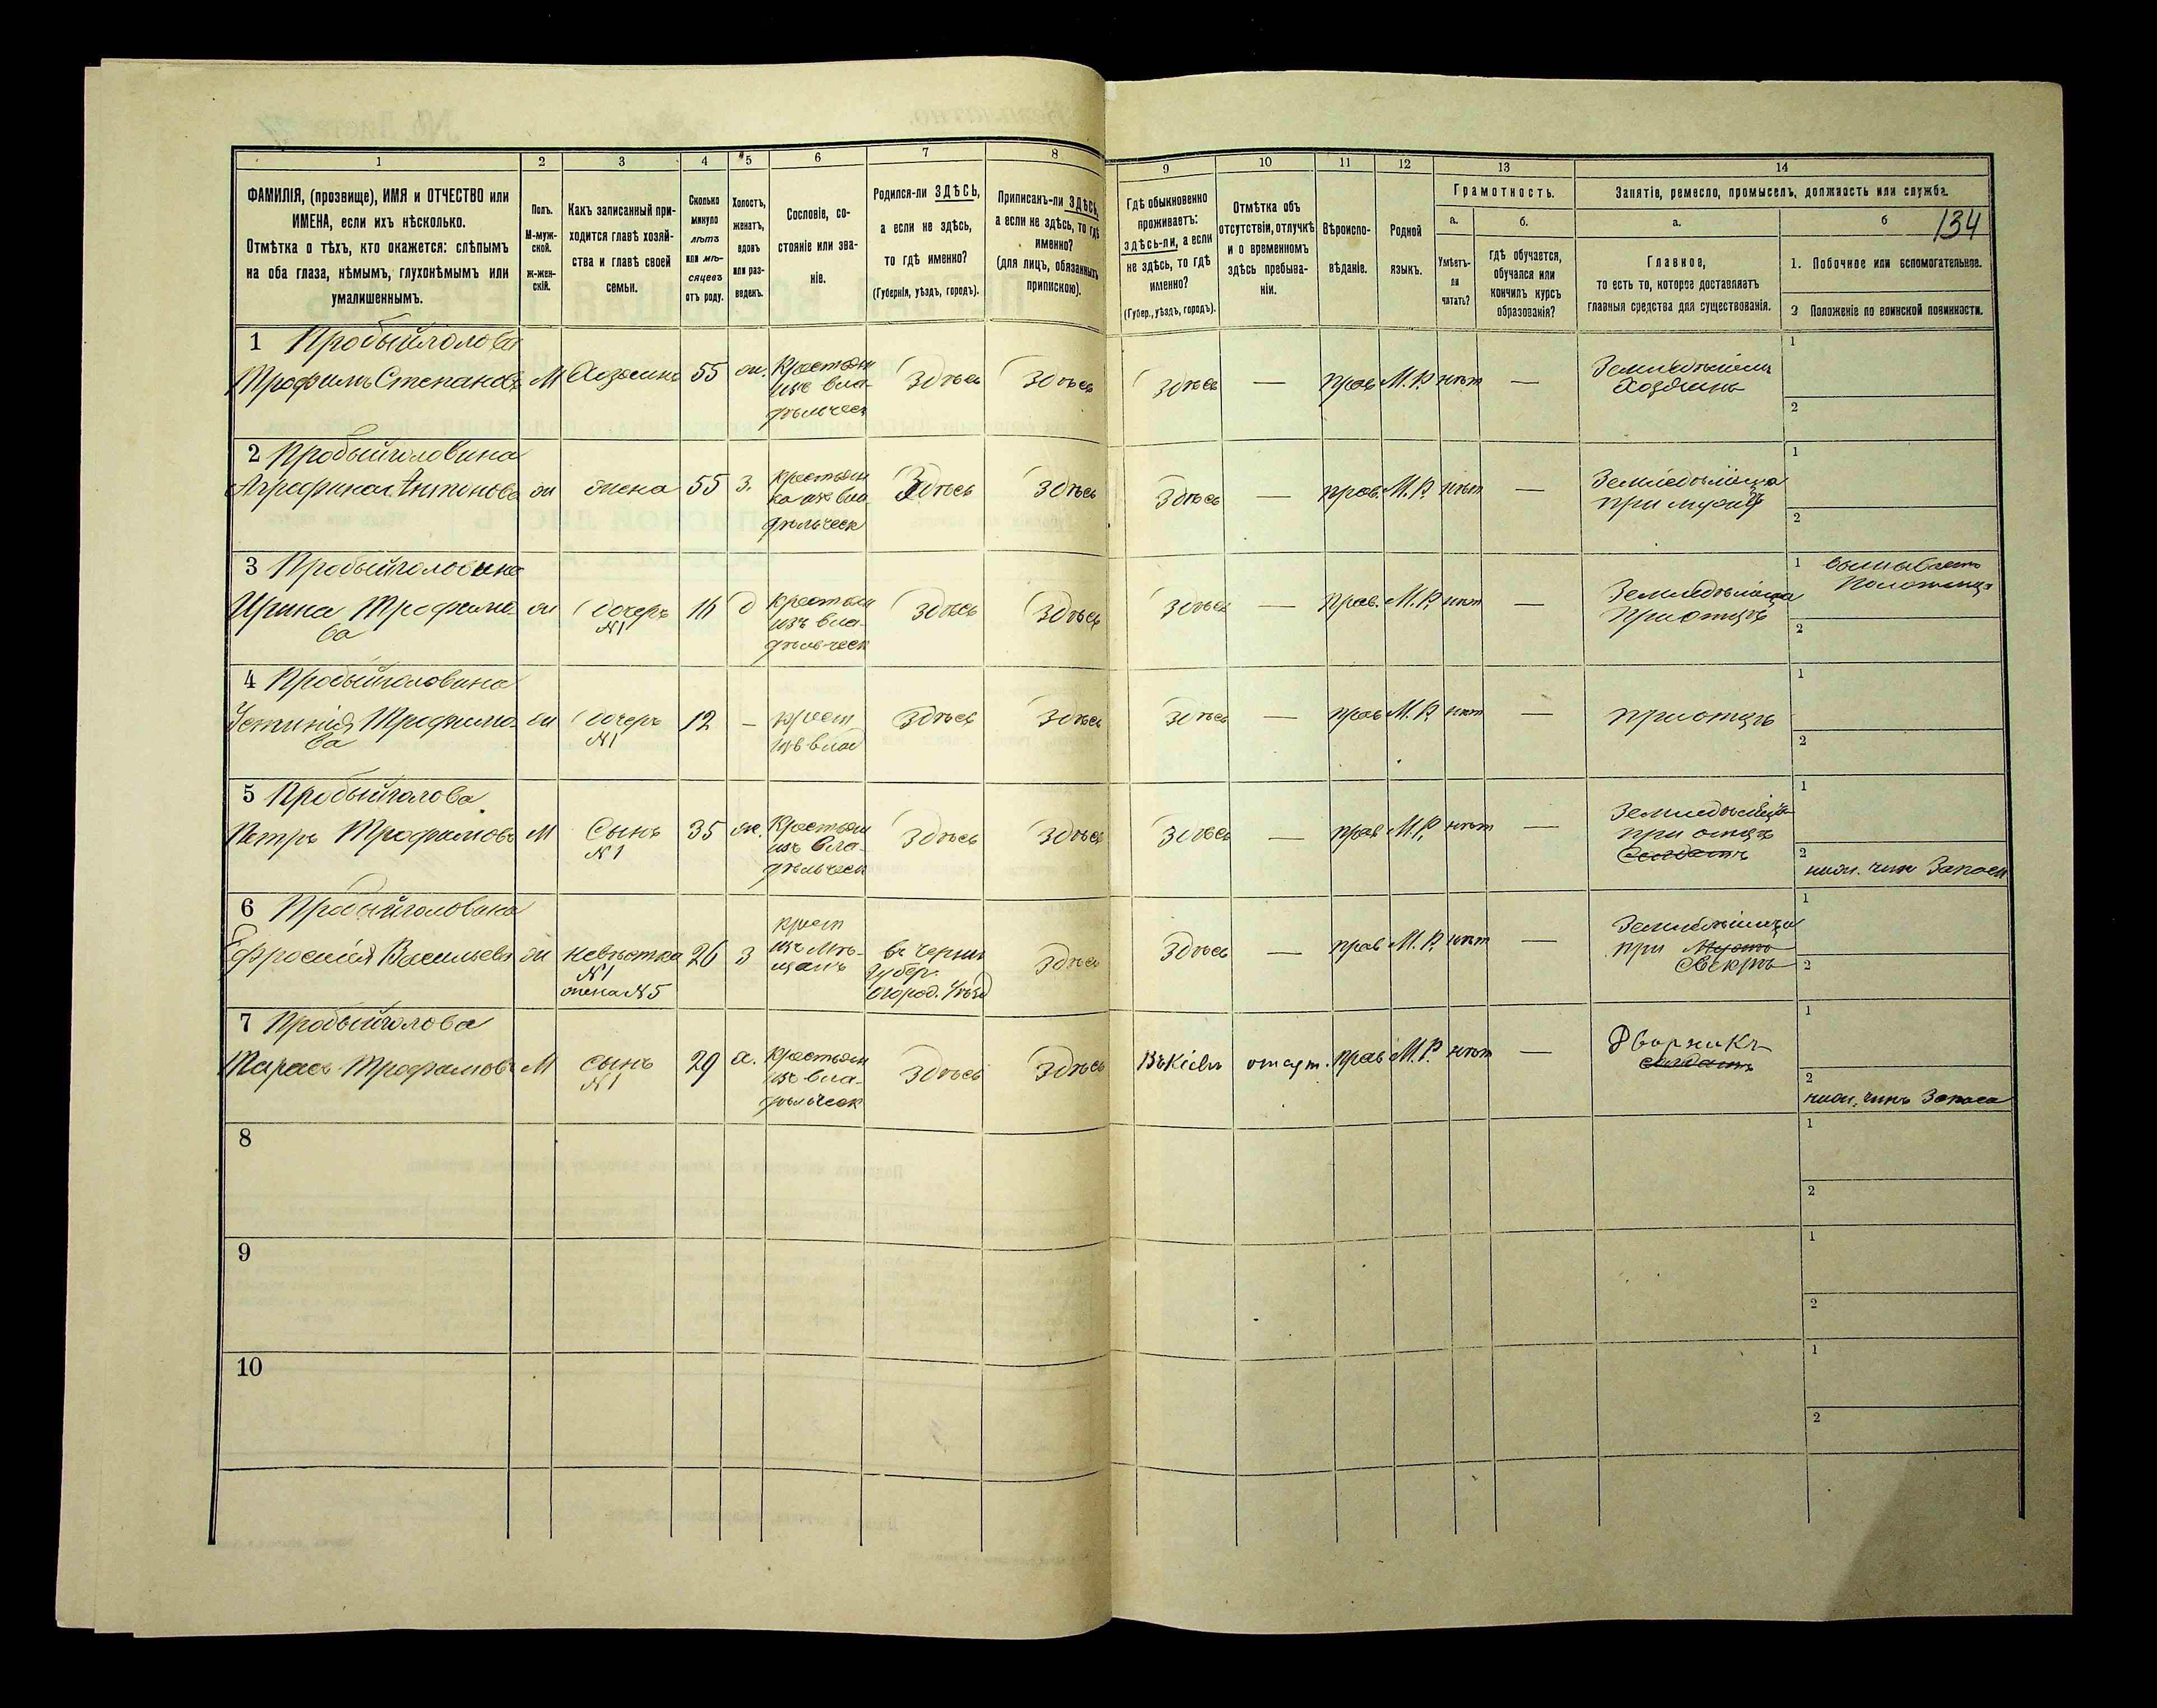 1
2
3
4
5
6
7
8
9
10
11
12
13
14
ФАМИЛІЯ, (прозвище), ИМЯ и ОТЧЕСТВО или
ИМЕНА, если ихъ нѣсколько.
Отмѣтка о тѣхъ, кто окажется: слѣпымъ
на оба глаза, нѣмымъ, глухонѣмымъ или
умалишеннымъ.
Полъ.
М-муж-
ской.
ж-жен-
скій.
Какъ записанный при-
ходится главѣ хозяй-
ства и главѣ своей
семьи.
Сколько
минуло
лѣтъ
или мѣ-
сяцевъ
отъ роду.
Холостъ,
женатъ,
вдовъ
или раз-
веденъ.
Сословіе, со-
стояніе или зва-
ніе.
Родился-ли ЗДѢСЬ,
а если не здѣсь,
то гдѣ именно?
(Губернія, уѣздъ, городъ).
Приписанъ-ли ЗДѢСЬ,
а если не здѣсь, то гдѣ
именно?
(для лицъ, обязанныхъ
припискою).
Гдѣ обыкновенно
проживаетъ:
здѣсь-ли, а если
не здѣсь, то гдѣ
именно?
(Губер., уѣздъ, городъ).
Отмѣтка объ
отсутствіи, отлучкѣ
и о временномъ
здѣсь пребыва-
ніи.
Вѣроиспо-
вѣданіе.
Родной
языкъ.
Грамотность.
а.
б.
Умѣетъ-
ли
читать?
гдѣ обучается,
обучался или
кончилъ курсъ
образованія?
Занятіе, ремесло, промыселъ, должность или служба.
а.
б
134
Главное,
то есть то, которое доставляетъ
главныя средства для существованія.
1. Побочное или вспомогательное.
2 Положеніе по воинской повинности.
1 Пробыйголова
Трофимъ Степановъ М Хозяинъ 55 ж. Крестьян
изъ вла-
дѣльческ
Здѣсь Здѣсь Здѣсь — прав М.Р. нѣт —
Земледѣлецъ
Хозяинъ
1
2
2 Пробыйголовина
Агрефина Антонова ж жена 55 з. крестьян
ка изъ вла
дѣльческ
Здѣсь Здѣсь Здѣсь — прав. М.Р. нѣт —
Земледѣлица
при мужѣ
1
2
3 Пробыйголовина
Ирина Трофимо-
ва
ж дочерь
№1
16 д крестьян
изъ вла-
дѣльческ
Здѣсь Здѣсь Здѣсь — прав. М.Р. нѣт —
Земледѣлица
при отцѣ
1 вышиваетъ
полотенца
2
4 Пробыйголовина
Устинія Трофимо-
ва
ж дочерь
№1
12 — крест
изъ влад
Здѣсь Здѣсь Здѣсь — прав М.Р. нѣт —
при отцѣ
1
2
5 Пробыйголова
Петръ Трофимовъ М Сынъ
№1
35 ж. Крестьян
изъ вла-
дѣльческ
Здѣсь Здѣсь Здѣсь — прав М.Р. нѣт —
Земледѣлецъ
при отцѣ
Солдатъ
1
2
нижн. чин Запаса
6 Пробыйголовина
Ефросинія Васильева ж невѣстка
№1
жена №5
26 з крест
изъ мѣ-
щанъ
въ Черниг
Губер.
Огород. Уѣзд
Здѣсь Здѣсь — прав М.Р. нѣт —
Земледѣлица
при мужѣ
Свекрѣ
1
2
7 Пробыйголова
Тарасъ Трофимовъ М сынъ
№1
29 х. Крестьян
изъ вла-
дѣльческ
Здѣсь Здѣсь Въ Кіевѣ отсут. прав М.Р. нѣт —
Дворникъ
солдатъ
1
2
нижн. чинъ Запаса
8
1
2
9
1
2
10
1
2